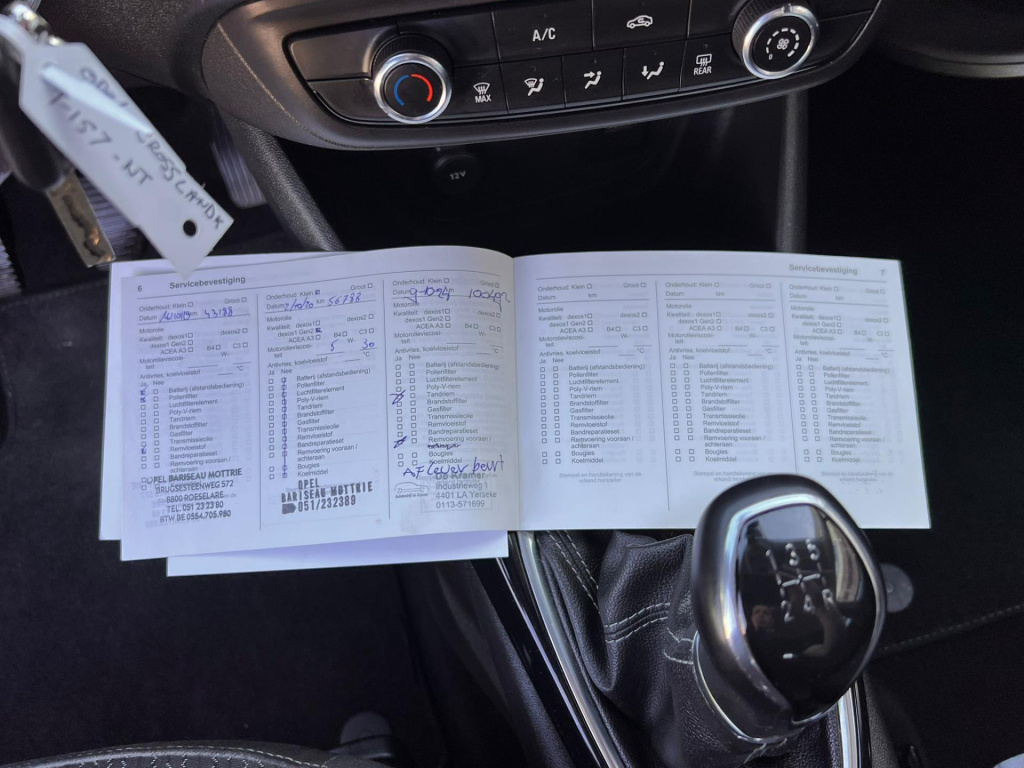 A/C
MAX
REAR
12V
OPEL CROSSLANDX
T-157-NT
6 Servicebevestiging
Onderhoud: Klein Groot
Datum km 43188
Motorolie
Kwaliteit: dexos1 dexos2
dexos1 Gen2
ACEA A3 B4 C3
Motorolieviscosi- W-
teit
Antivries, koelvloeistof °C
Ja Nee
Batterij (afstandsbediening)
Pollenfilter
Luchtfilterelement
Poly-V-riem
Tandriem
Brandstoffilter
Gasfilter
Transmissieolie
Remvloeistof
Bandreparatieset
Remvoering vooraan /
achteraan
Bougies
Koelmiddel
OPEL BARISEAU MOTTRIE
BRUGSESTEENWEG 572
8800 ROESELARE
TEL. 051 23 23 80
BTW BE 0554.705.980
Onderhoud: Klein Groot
Datum 2/10/20 km 56788
Motorolie
Kwaliteit: dexos1 dexos2
dexos1 Gen2
ACEA A3 B4 C3
Motorolieviscosi- 5 W- 30
teit
Antivries, koelvloeistof °C
Ja Nee
Batterij (afstandsbediening)
Pollenfilter
Luchtfilterelement
Poly-V-riem
Tandriem
Brandstoffilter
Gasfilter
Transmissieolie
Remvloeistof
Bandreparatieset
Remvoering vooraan /
achteraan
Bougies
Koelmiddel
OPEL
BARISEAU MOTTRIE
051/232389
Onderhoud: Klein Groot
Datum 9-10-24
Motorolie
Kwaliteit: dexos1 dexos2
dexos1 Gen2
ACEA A3 B4 C3
Motorolieviscosi- W-
teit
Antivries, koelvloeistof °C
Ja Nee
Batterij (afstandsbediening)
Pollenfilter
Luchtfilterelement
Poly-V-riem
Tandriem
Brandstoffilter
Gasfilter
Transmissieolie
Remvloeistof
Bandreparatieset
Remvoering vooraan /
Bougies
Koelmiddel
Aflever beurt
De Kramer
Industrieweg 1
4401 LA Yerseke
0113-571699
Servicebevestiging 7
Onderhoud: Klein Groot
Datum km
Motorolie
Kwaliteit: dexos1 dexos2
dexos1 Gen2
ACEA A3 B4 C3
Motorolieviscosi- W-
teit
Antivries, koelvloeistof °C
Ja Nee
Batterij (afstandsbediening)
Pollenfilter
Luchtfilterelement
Poly-V-riem
Tandriem
Brandstoffilter
Gasfilter
Transmissieolie
Remvloeistof
Bandreparatieset
Remvoering vooraan /
achteraan
Bougies
Koelmiddel
Stempel en handtekening van de
erkend hersteller
Onderhoud: Klein Groot
Datum km
Motorolie
Kwaliteit: dexos1 dexos2
dexos1 Gen2
ACEA A3 B4 C3
Motorolieviscosi- W-
teit
Antivries, koelvloeistof °C
Ja Nee
Batterij (afstandsbediening)
Pollenfilter
Luchtfilterelement
Poly-V-riem
Tandriem
Brandstoffilter
Gasfilter
Transmissieolie
Remvloeistof
Bandreparatieset
Remvoering vooraan /
achteraan
Bougies
Koelmiddel
Stempel en handtekening van de
erkend hersteller
Onderhoud: Klein Groot
Datum km
Motorolie
Kwaliteit: dexos1 dexos2
dexos1 Gen2
ACEA A3 B4 C3
Motorolieviscosi- W-
teit
Antivries, koelvloeistof °C
Ja Nee
Batterij (afstandsbediening)
Pollenfilter
Luchtfilterelement
Poly-V-riem
Tandriem
Brandstoffilter
Gasfilter
Transmissieolie
Remvloeistof
Bandreparatieset
Remvoering vooraan /
achteraan
Bougies
Koelmiddel
Stempel en handtekening van de
erkend hersteller
1 3 5
2 4 R